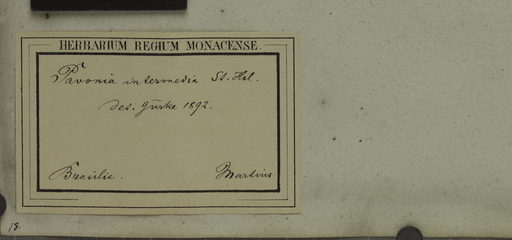 HERBARIUM REGIUM MONACENSE.
Pavonia intermedia St. Hil.
det: Gürke 1892.
Brasilia. Martius
18.